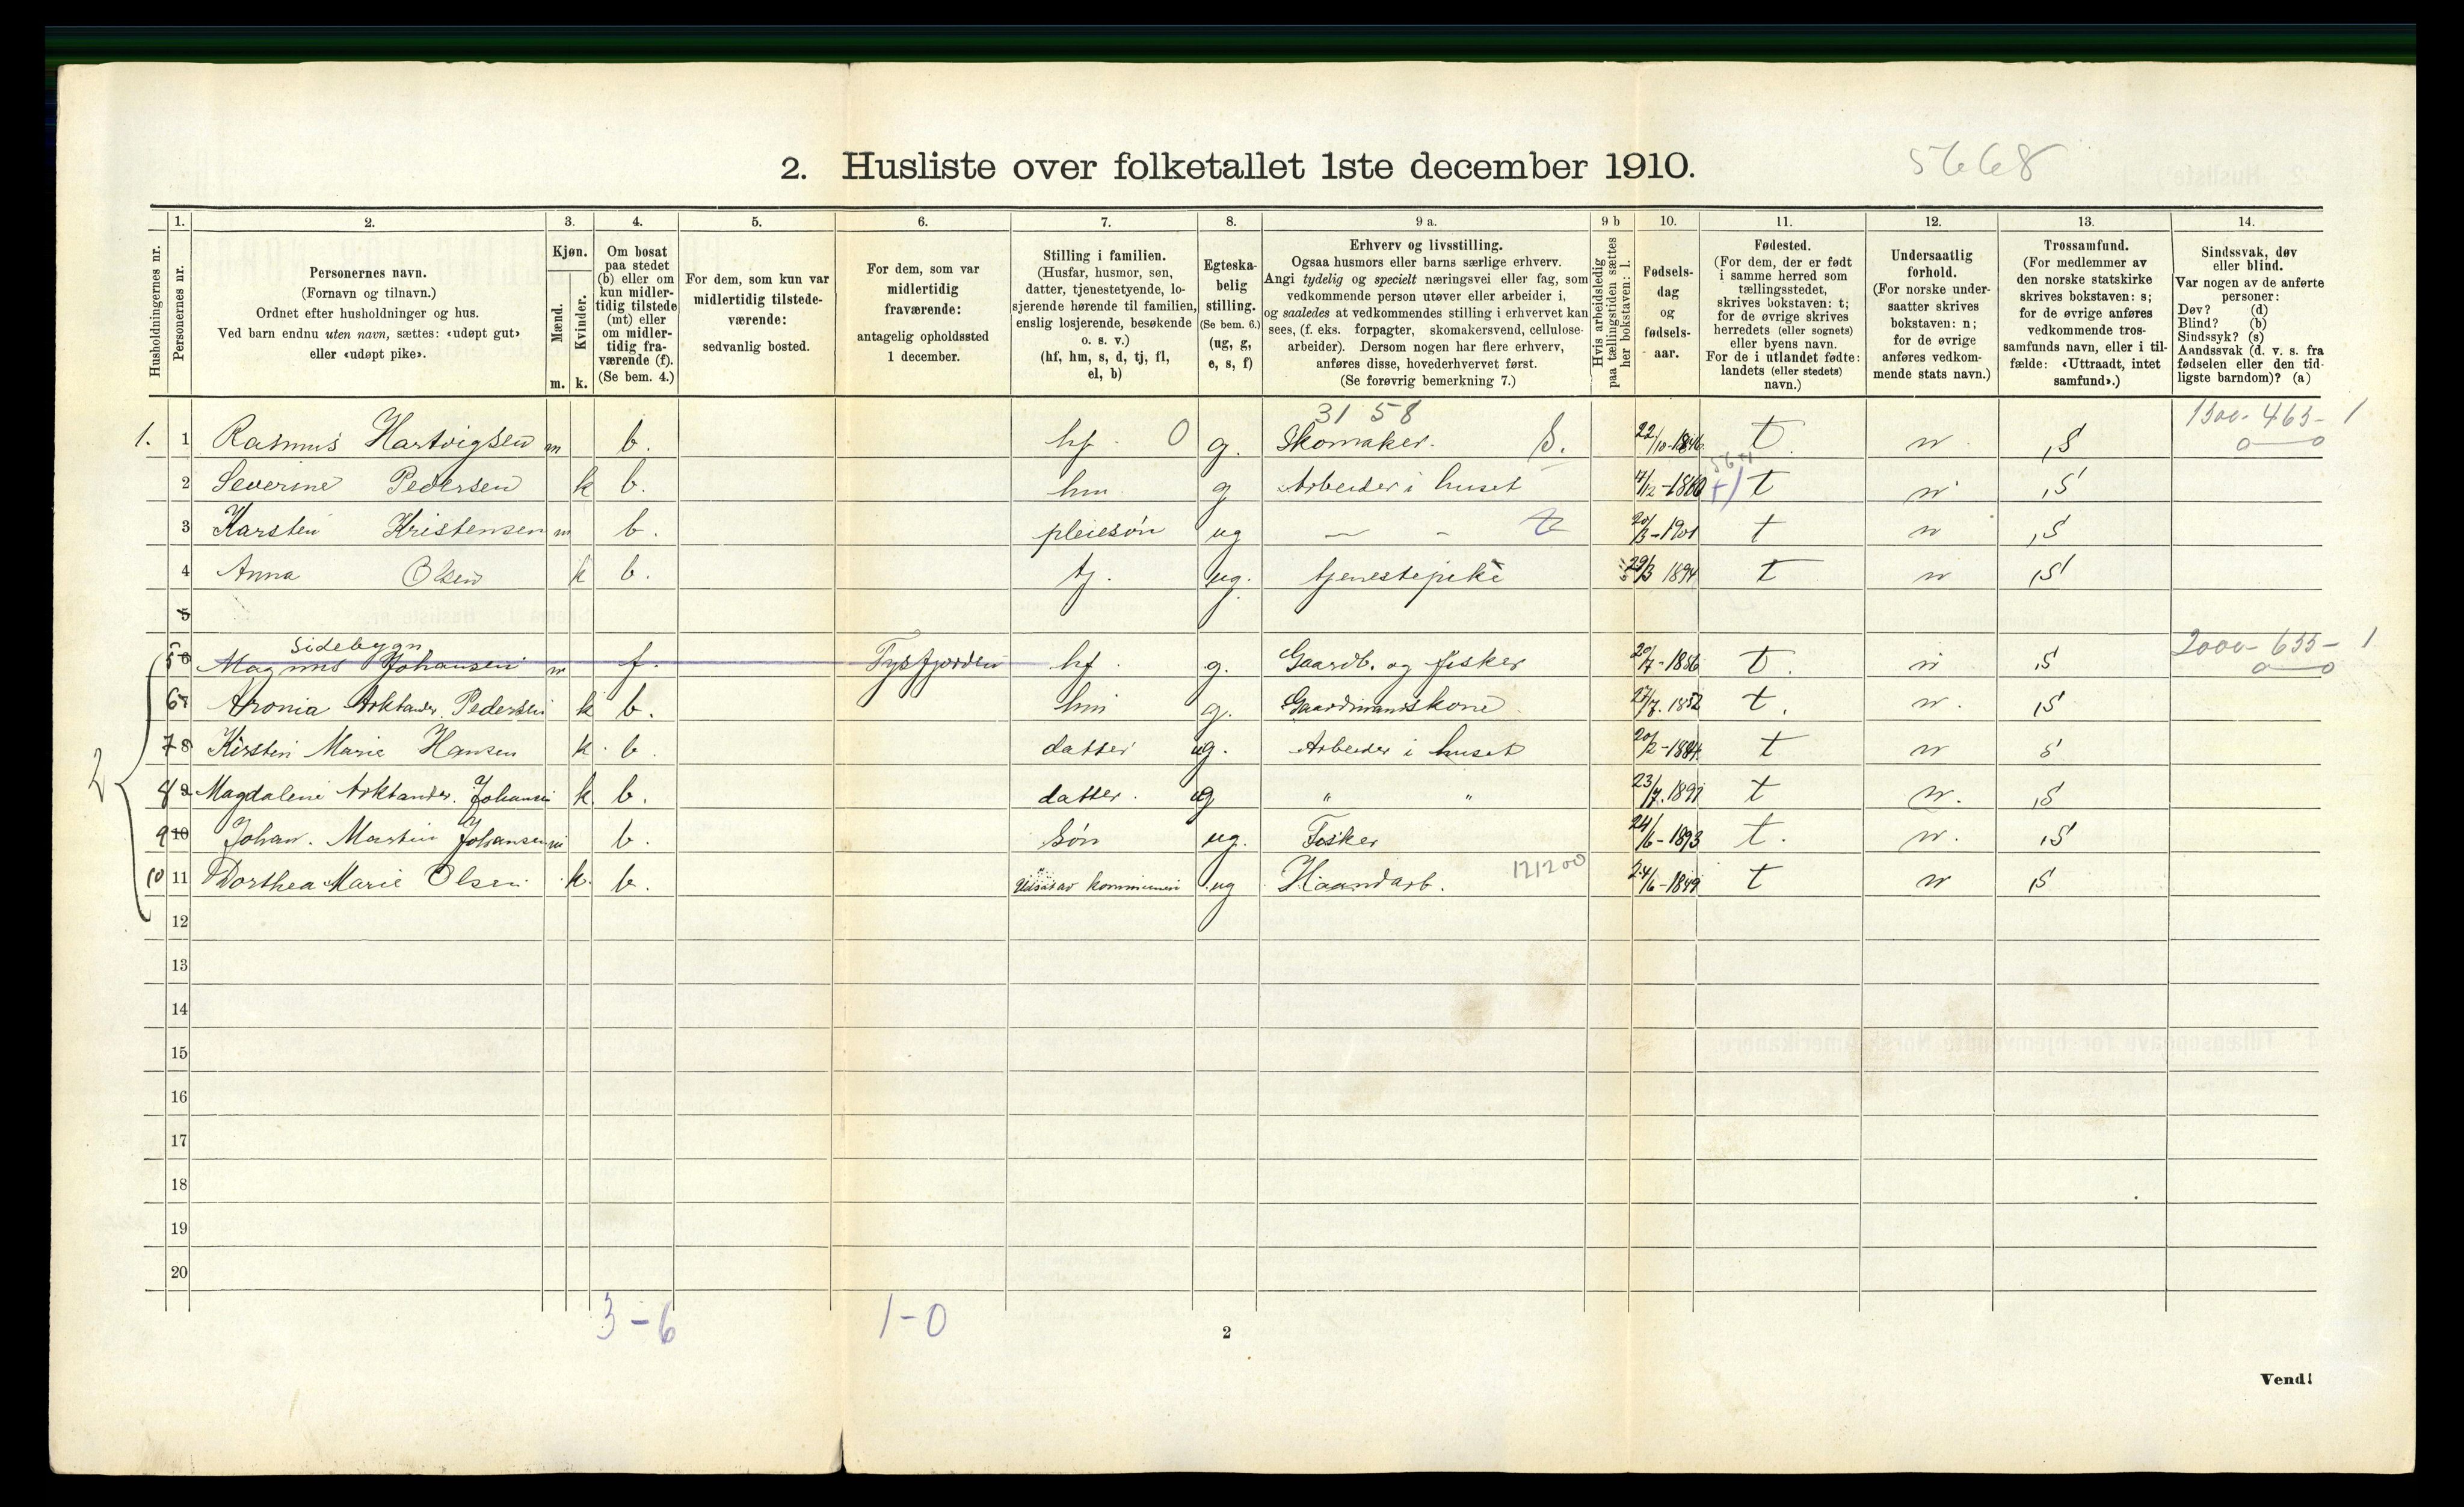 2. Husliste over folketallet 1ste december 1910.
5668
Husholdningernes nr.
1.
Personernes nr.
2.
Personernes navn.
(Fornavn og tilnavn.)
Ordnet efter husholdninger og hus.
Ved barn endnu uten navn, sættes: «udøpt gut»
eller «udøpt pike».
3.
Kjøn.
Mænd.
Kvinder.
m. k.
4.
Om bosat
paa stedet
(b) eller om
kun midler-
tidig tilstede
(mt) eller
om midler-
tidig fra-
værende (f).
(Se bem. 4.)
5.
For dem, som kun var
midlertidig tilstede-
værende:
sedvanlig bosted.
6.
For dem, som var
midlertidig
fraværende:
antagelig opholdssted
1 december.
7.
Stilling i familien.
(Husfar, husmor, søn,
datter, tjenestetyende, lo-
sjerende hørende til familien,
enslig losjerende, besøkende
o. s. v.)
(hf, hm, s, d, tj, fl,
el, b)
8.
Egteska-
belig
stilling.
(Se bem. 6.)
(ug, g,
e, s, f)
9 a.
Erhverv og livsstilling.
Ogsaa husmors eller barns særlige erhverv.
Angi tydelig og specielt næringsvei eller fag, som
vedkommende person utøver eller arbeider i,
og saaledes at vedkommendes stilling i erhvervet kan
sees, (f. eks. forpagter, skomakersvend, cellulose-
arbeider). Dersom nogen har flere erhverv,
anføres disse, hovederhvervet først.
(Se forøvrig bemerkning 7.)
9 b
Hvis arbeidsledig
paa tællingstiden sættes
her bokstaven: l.
10.
Fødsels-
dag
og
fødsels-
aar.
11.
Fødested.
(For dem, der er født
i samme herred som
tællingsstedet,
skrives bokstaven: t;
for de øvrige skrives
herredets (eller sognets)
eller byens navn.
For de i utlandet fødte:
landets (eller stedets)
navn.)
12.
Undersaatlig
forhold.
(For norske under-
saatter skrives
bokstaven: n;
for de øvrige
anføres vedkom-
mende stats navn.)
13.
Trossamfund.
(For medlemmer av
den norske statskirke
skrives bokstaven: s;
for de øvrige anføres
vedkommende tros-
samfunds navn, eller i til-
fælde: «Uttraadt, intet
samfund».)
14.
Sindssvak, døv
eller blind.
Var nogen av de anførte
personer:
Døv? (d)
Blind? (b)
Sindssyk? (s)
Aandssvak (d. v. s. fra
fødselen eller den tid-
ligste barndom)? (a)
31 58
1300- 463- 1
1. 1 Rasmus Hartvigsen m b. hf. 0 g. Skomaker. S. 22/10-1846 t. n. s 0—0
2 Severine Pedersen k b. hm. g Arbeider i huset 17/12-1860 t n s
3 Karsten Kristensen m b. pleiesøn ug — - 20/3-1901 t n s
4 Anna Olsen k b. tj. ug. tjenestepike 29/3 1894 t n s
5
Sidebygn
2000- 655- 1
2 5 6 Magnus Johansen m f. Tysfjorden hf. g. Gaardb. og fisker 20/7-1856 t. n s 0—0
6 7 Aronia Arktander Pedersen k b. hm g. Gaardmandskone. 27/7. 1852 t. n. s
7 8 Kirsten Marie Hansen k. b. datter ug. Arbeider i huset 20/2-1884 t n s
8 9 Magdalene Arktander. Johansen k. b. datter. ug " " 23/7. 1891 t n. s
9 10 Johan. Martin Johansen m b. søn ug. Fisker 24/6-1893 t. n. s
10 11 Dorthea Marie Olsen k. b. Udsat av kommunen ug Haandarb. 121200 24/6-1849 t n s
12
13
14
15
16
17
18
19
20
3-6 1-0
2
Vend!